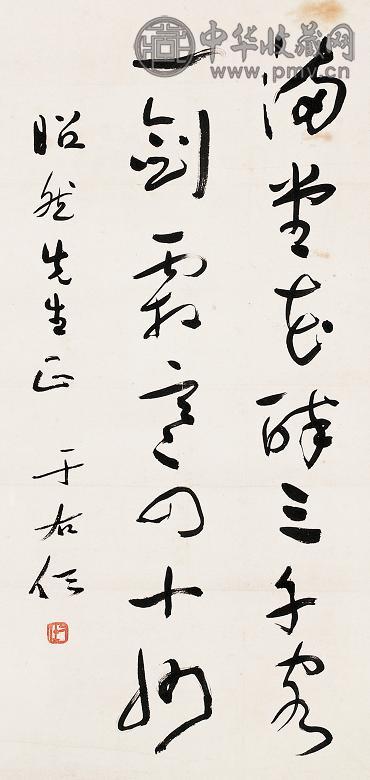 满堂花醉三千客
一剑霜寒四十州
昭然先生正 于右任
中华收藏网
www.pmv.cn